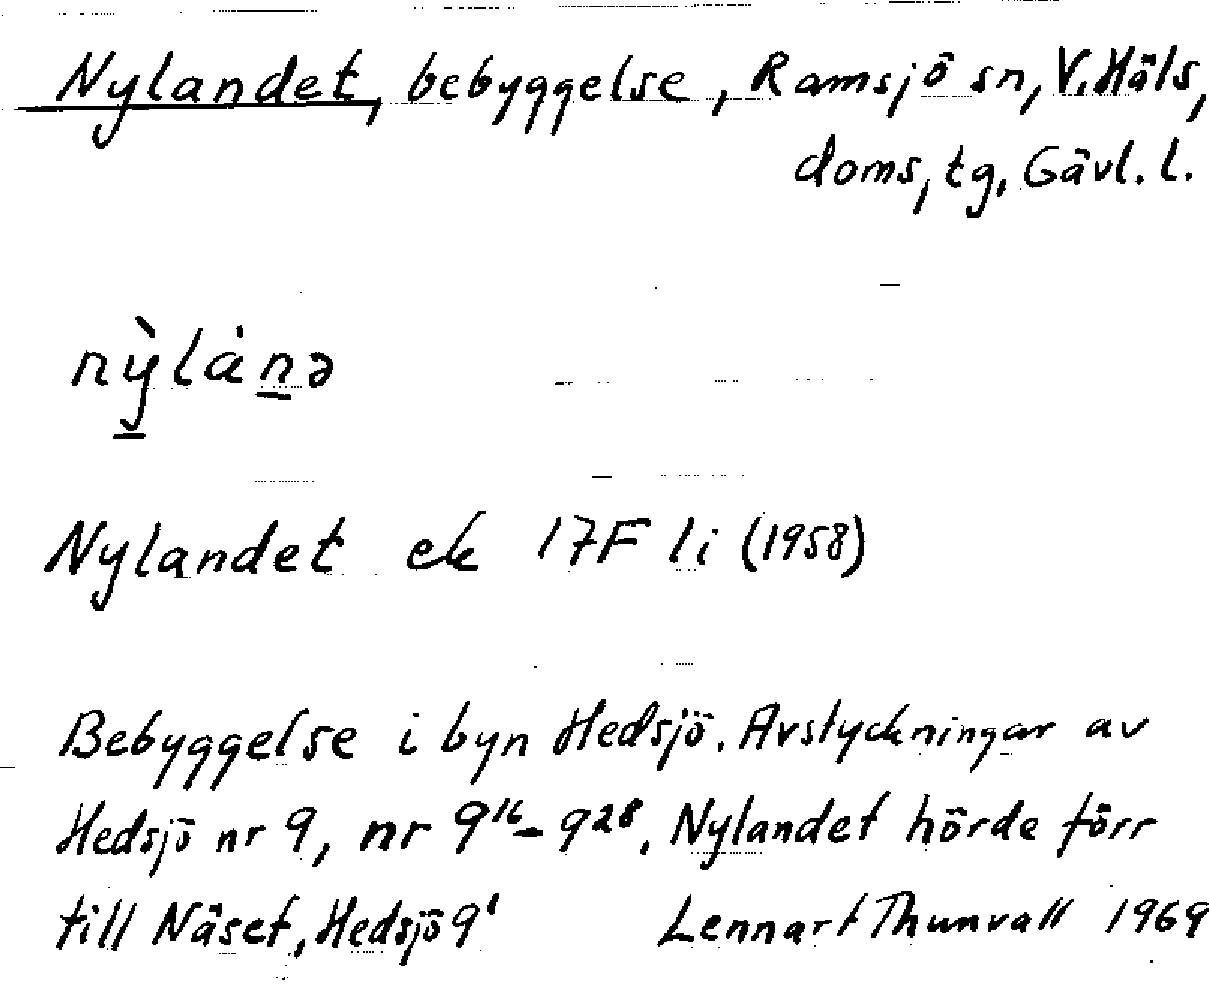 Nylandet, bebyggelse, Ramsjö sn, V. Häls,
doms, tg, Gävl. l.
nỳlȧnə
Nylandet ek 17F li (1958)
Bebyggelse i byn Hedsjö. Avstyckningar av
Hedsjö nr 9, nr 9¹⁶-9²⁸. Nylandet hörde förr
till Näset, Hedsjö 9¹ Lennart Thunvall 1969